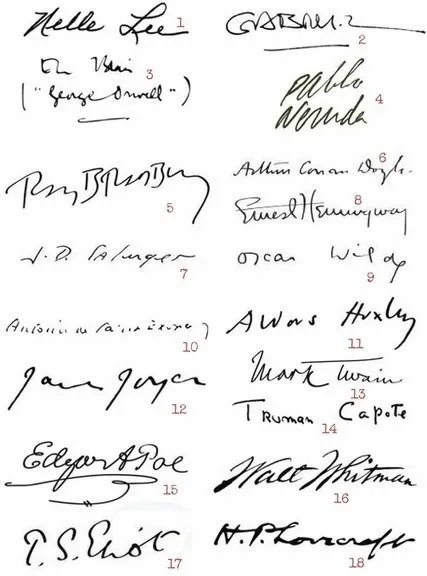 Nelle Lee 1
GABRIEL 2
Eric Blair 3
("George Orwell")
Pablo
Neruda 4
Ray Bradbury 5
Arthur Conan Doyle. 6
J. D. Salinger 7
Ernest Hemingway 8
Oscar Wilde 9
Antoine de Saint Exupéry 10
Aldous Huxley 11
James Joyce 12
Mark Twain 13
Truman Capote 14
Edgar A Poe 15
Walt Whitman 16
T. S. Eliot 17
H. P. Lovecraft 18